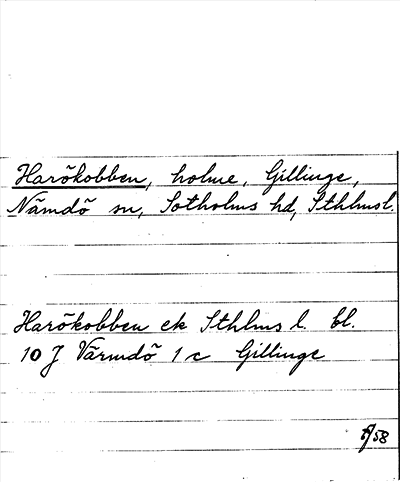 Harökobben, holme, Gillinge,
Nämdö sn, Sotholms hd, Sthlmsl.
Harökobben ek Sthlms l. bl.
10 J Värmdö 1 c Gillinge
58